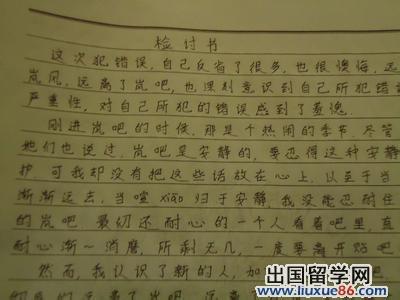 检讨书
这次犯错误,自己反省了很多,也很懊悔,远
岚风,远离了岚吧,也深刻意识到自己所犯错误
严重性,对自己所犯的错误感到了羞愧
刚进岚吧的时候,那是个热闹的季节.尽管
她们也说过,岚吧是安静的,要忍得这种安静
护,可我却没有把这些话放在心上,以至于当
渐渐远去,当喧xiāo归于安静,我没能忍耐住
的岚吧,最初还耐心的一个人看着吧里,直
耐心渐~消磨,所剩无几,一度要离开贴吧
然而,我认识了新的人,加
的远离了岚吧,远离
出国留学网
www.liuxue86.com